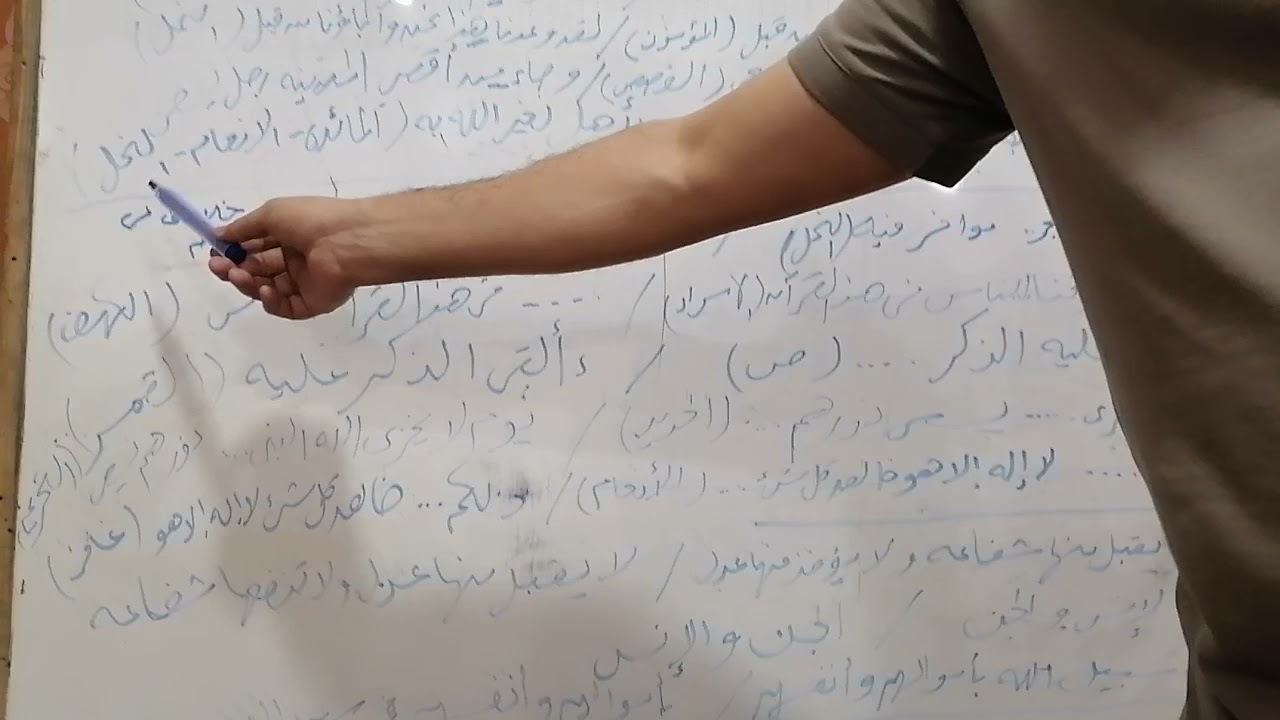 قبل (المؤمنون) / لقد وعدنا هذا نحن وآباؤنا من قبل (النمل)
(القصص) / وجاء من أقصى المدينة رجل
لغير الله به (المائدة - الانعام - النحل)
مواخر فيه (النحل) /
للناس فى هذا القرآن (الإسراء) / .... فى هذا (الكهف)
عليه الذكر .... (ص) / ءألقى الذكر عليه (القمر)
.... نورهم ... (الحديد) / يوم لا يخزى الله النبى ... نورهم (التحريم)
.... لا إله الا هو خالق كل شئ ... (الأنعام) / ... خالق كل شئ لا إله الا هو (غافر)
يقبل منها شفاعه ولا يؤخذ منها عدل / لا يقبل منها عدل ولا تنفعها شفاعه
الإنس والجن / الجن والإنس
سبيل الله بأموالهم وأنفسهم / بأموالهم وأنفسهم فى